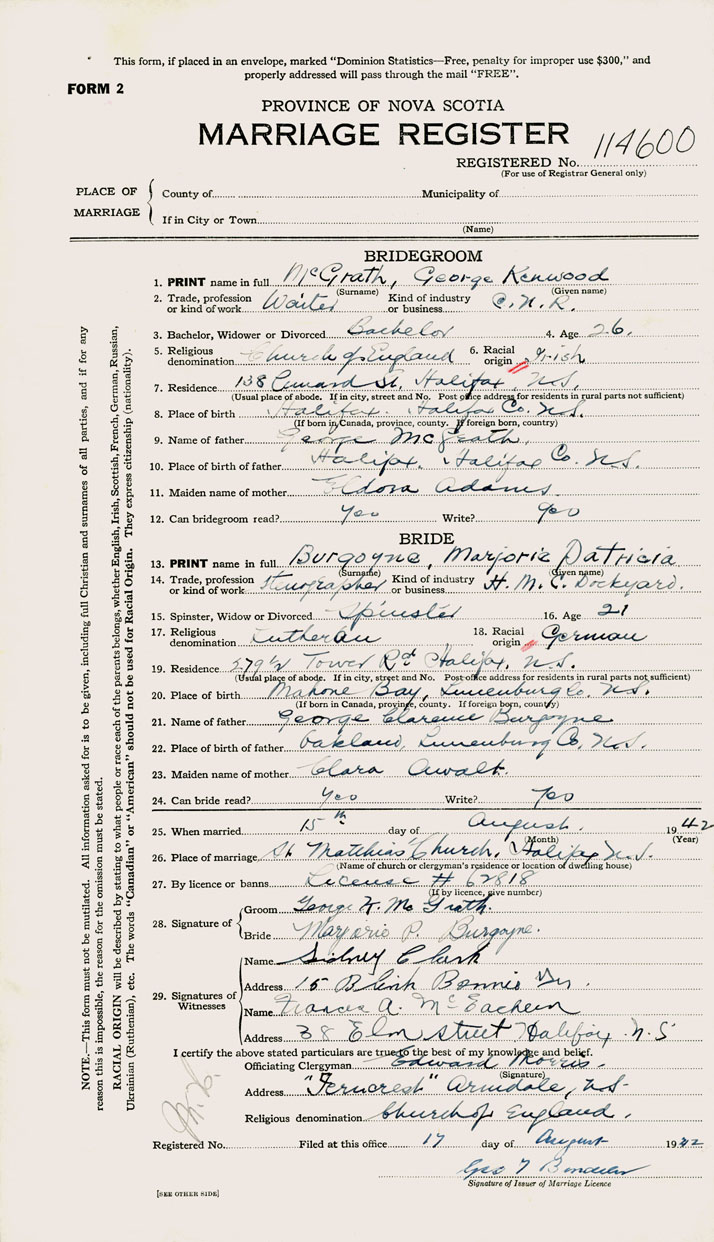 This form, if placed in an envelope, marked "Dominion Statistics—Free, penalty for improper use $300," and
properly addressed will pass through the mail "FREE".
FORM 2
PROVINCE OF NOVA SCOTIA
MARRIAGE REGISTER
REGISTERED No. 114600
(For use of Registrar General only)
PLACE OF MARRIAGE
County of Municipality of
If in City or Town
(Name)
BRIDEGROOM
1. PRINT name in full McGrath, George Kenwood
(Surname) (Given name)
2. Trade, profession or kind of work Waiter Kind of industry or business C.N.R.
3. Bachelor, Widower or Divorced Bachelor 4. Age 26.
5. Religious denomination Church of England 6. Racial origin Irish
7. Residence 138 St. Halifax, N.S.
(Usual place of abode. If in city, street and No. Post office address for residents in rural parts not sufficient)
8. Place of birth Halifax. Halifax Co. N.S.
(If born in Canada, province, county. If foreign born, country)
9. Name of father George McGrath.
10. Place of birth of father Halifax, Halifax Co. N.S.
11. Maiden name of mother Eldora Adams.
12. Can bridegroom read? Yes Write? Yes
BRIDE
13. PRINT name in full Burgoyne, Marjorie Patricia
(Surname) (Given name)
14. Trade, profession or kind of work Stenographer Kind of industry or business H.M.C. Dockyard.
15. Spinster, Widow or Divorced Spinster 16. Age 21
17. Religious denomination Lutheran 18. Racial origin German
19. Residence 579½ Tower Rd Halifax, N.S.
(Usual place of abode. If in city, street and No. Post office address for residents in rural parts not sufficient)
20. Place of birth Mahone Bay, Lunenburg Co. N.S.
(If born in Canada, province, county. If foreign born, country)
21. Name of father George Clarence Burgoyne
22. Place of birth of father Oakland, Lunenburg Co. N.S.
23. Maiden name of mother Clara Awalt.
24. Can bride read? Yes Write? Yes
25. When married 15th day of August. 1942
(Month) (Year)
26. Place of marriage St. Matthias' Church, Halifax N.S.
(Name of church or clergyman's residence or location of dwelling house)
27. By licence or banns License # 62818
(If by licence, give number)
28. Signature of
Groom George K. McGrath.
Bride Marjorie P. Burgoyne.
29. Signatures of Witnesses
Name Sidney Clark
Address 15 Blink Bonnie
Name Frances A. McEachern
Address 38 Elm street Halifax N.S
I certify the above stated particulars are true to the best of my knowledge and belief.
Officiating Clergyman Edward Morris.
(Signature)
Address "Ferncrest" Armdale, N.S.
Religious denomination Church of England.
Registered No. Filed at this office 17 day of August 1942
Geo
Signature of Issuer of Marriage Licence
[SEE OTHER SIDE]
NOTE.—This form must not be mutilated. All information asked for is to be given, including full Christian and surnames of all parties, and if for any
reason this is impossible, the reason for the omission must be stated.
RACIAL ORIGIN will be described by stating to what people or race each of the parents belongs, whether English, Irish, Scottish, French, German, Russian,
Ukrainian (Ruthenian), etc. The words "Canadian" or "American" should not be used for Racial Origin. They express citizenship (nationality).